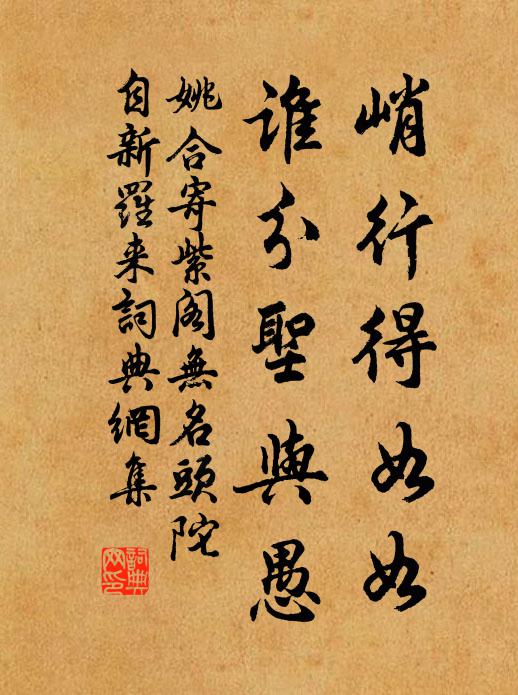 峭行得如如
誰分聖與愚
姚合寄紫閣無名頭陀
自新羅来詞典網集
詞典网印